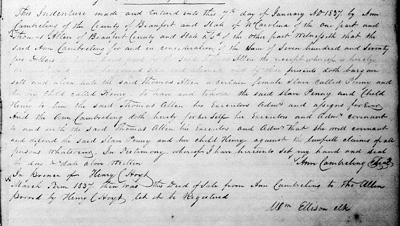 This Indenture made and entered into this 7th day of January AD 1837 by Ann
Cambreling of the County of Beaufort and State of N Carolina of the one part and
Thomas Allen of Beaufort County and State of the other part Witnesseth that the
said Ann Cambreling for and in consideration of the Sum of Seven hundred and Seventy
five Dollars Allen the receipt whereof is hereby
presents doth bargain
sell and alien unto the said Thomas Allen a certain female Slave called Penny and
her child called Henry to have and to hold the said Slave Penny and Child
Henry to him the said Thomas Allen his Executors Admrs and assigns forever
And the Ann Cambreling doth hereby for herself her executors and Admrs covenant
to and with the said Thomas Allen his executors and Admrs that she will warrant
and defend the said Slave Penny and her child Henry against the lawfull claims of all
persons whatever. In Testimony whereof I have hereunto set my hand and seal
the day & date above written
Ann Cambreling Seal
In presence of Henry C Hoyt
March Term 1837 then was this Deed of Sale from Ann Cambreling to Thos Allen
proved by Henry C Hoyt, let it be Registered
Wm Ellison clk